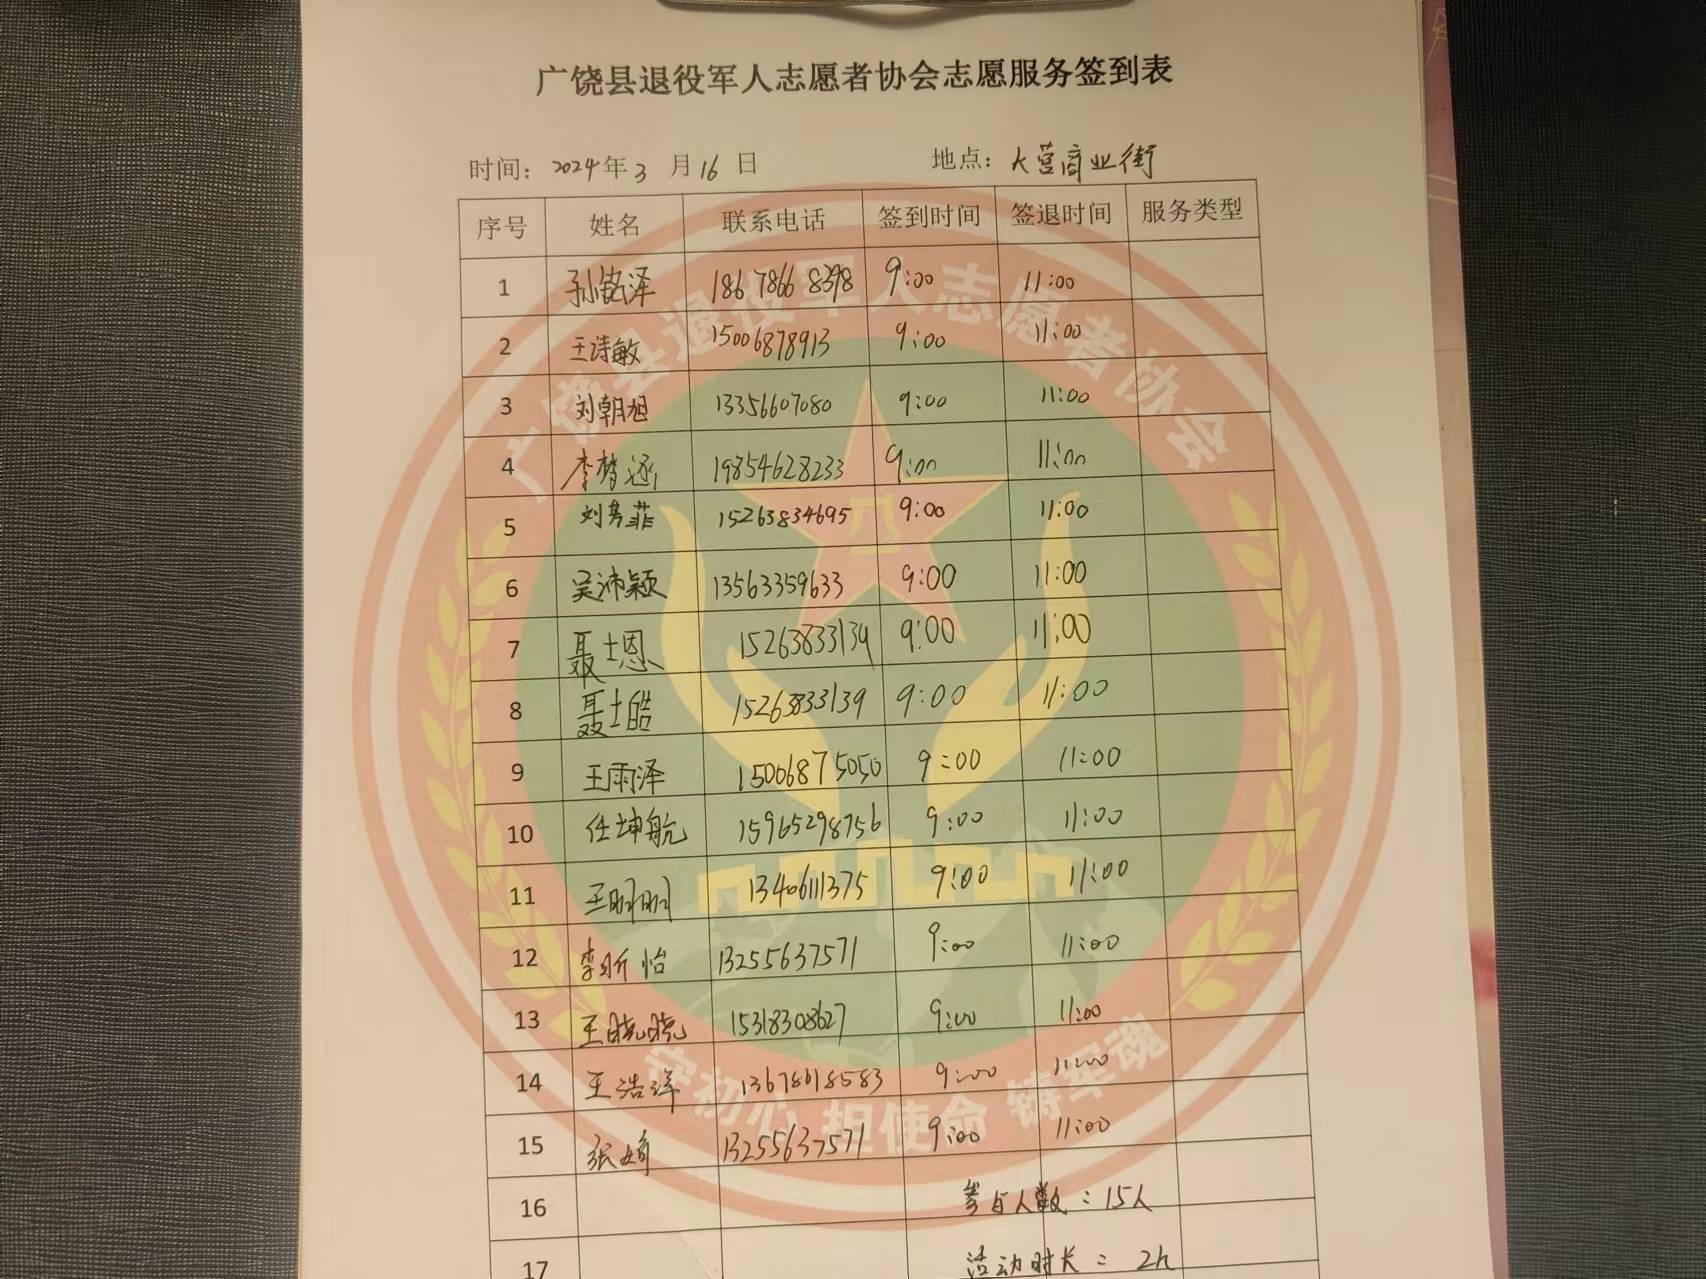 广饶县退役军人志愿者协会志愿服务签到表
时间：2024年3月16日 地点：大营商业街
序号 姓名 联系电话 签到时间 签退时间 服务类型
1 孙铭泽 18678668398 9:00 11:00
2 王诗敏 15006878913 9:00 11:00
3 刘朝旭 13356607080 9:00 11:00
4 李梦涵 19854628233 9:00 11:00
5 刘芳菲 15263834695 9:00 11:00
6 吴沛颖 13563359633 9:00 11:00
7 聂士恩 15263833139 9:00 11:00
8 聂士皓 15263833139 9:00 11:00
9 王雨泽 15006875050 9:00 11:00
10 任坤航 15965298756 9:00 11:00
11 王明明 13406111375 9:00 11:00
12 李昕怡 13255637571 9:00 11:00
13 王晓晓 15318308627 9:00 11:00
14 王浩洋 13678618583 9:00 11:00
15 张婧 13255637571 9:00 11:00
16 参与人数：15人
17 活动时长：2h
广饶县退役军人志愿者协会
八一
守初心 担使命 铸军魂